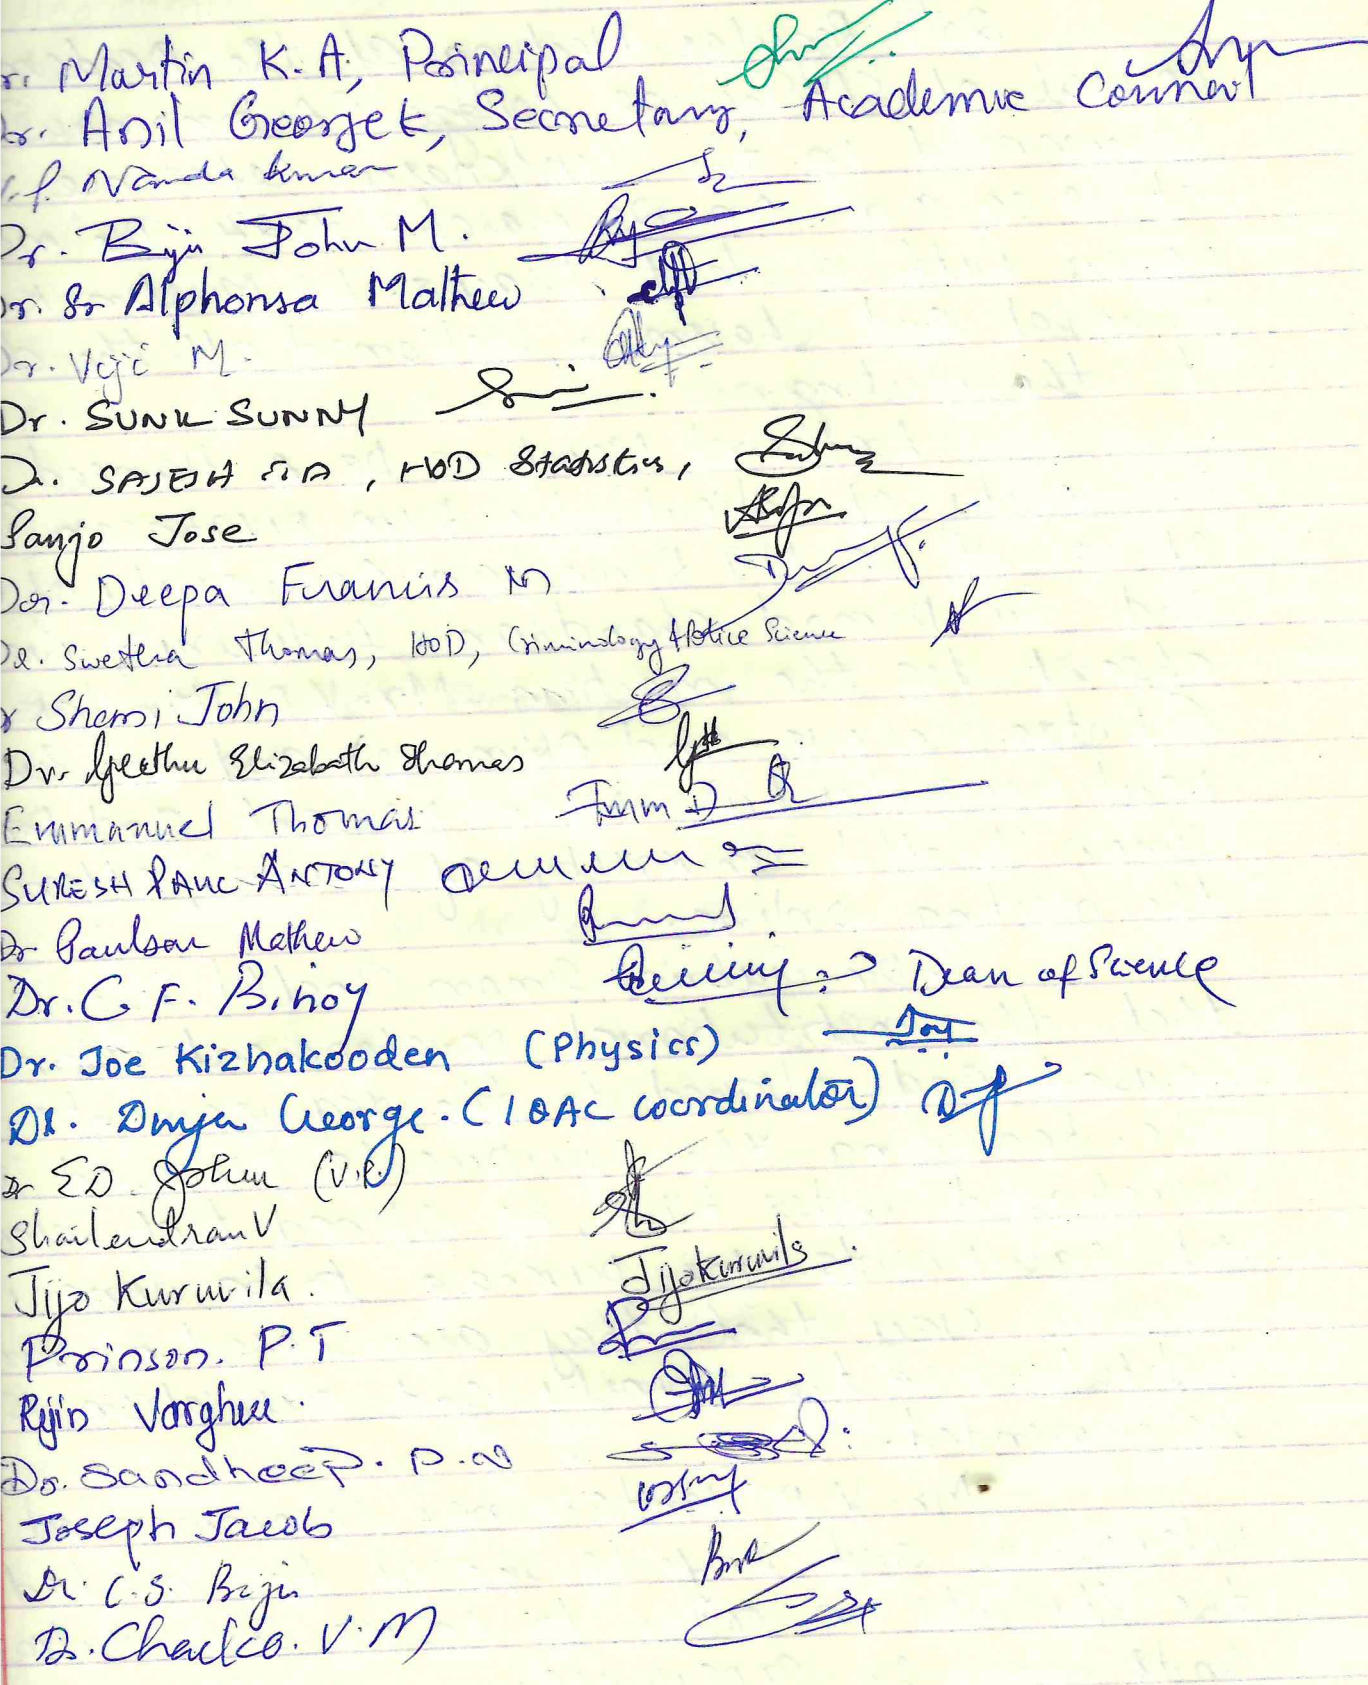 Dr. Martin K.A, Principal
Dr. Anil George K, Secretary, Academic Council
Nanda Kumar
Dr. Biju John M.
Dr. Sr Alphonsa Mathew
Dr. Viji M.
Dr. SUNIL SUNNY
Dr. SAJESH T A, HOD Statistics,
Sanjo Jose
Dr. Deepa Francis M
Dr. Swetha Thomas, HOD, Criminology & Police Science
Dr Shemi John
Dr. Geethu Elizabath Thomas
Emmanuel Thomas
SURESH PAUL ANTONY
Dr Paulson Mathew
Dr. C F. Binoy Dean of Science
Dr. Joe Kizhakooden (Physics)
Dr. Dinja George. (IQAC coordinator)
Dr E D John (V.P.)
Shailendran V
Jijo Kuruvila. Jijo Kuruvila
Prinson. P.T
Rijin Varghese.
Dr. Sandheep. P.N
Joseph Jacob
Dr. C.S. Biju
Dr. Chacko. V.M